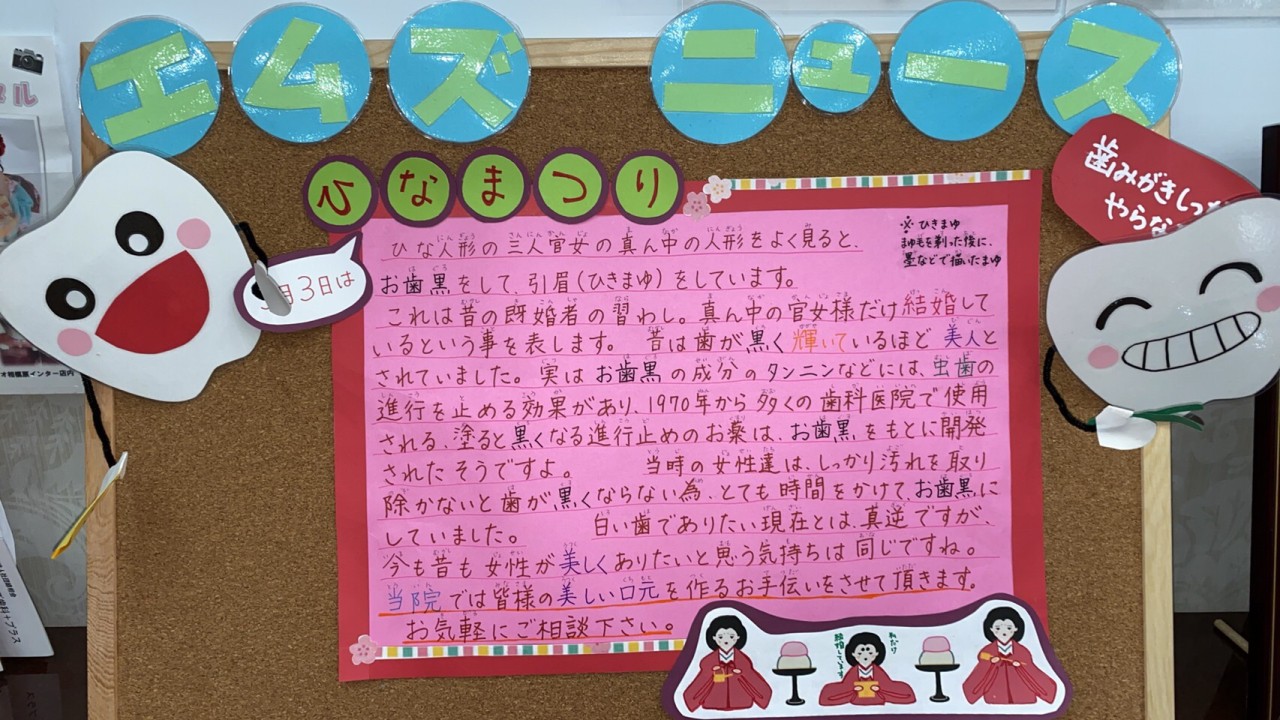 エムズ ニュース
ひなまつり
月3日は
歯みがきしっ
やらな
※ ひきまゆ
まゆ毛を剃った後に、
墨などで描いたまゆ
ひな人形の三人官女の真ん中の人形をよく見ると、
お歯黒をして、引眉(ひきまゆ)をしています。
これは昔の既婚者の習わし。真ん中の官女様だけ結婚して
いるという事を表します。 昔は歯が黒く輝いているほど美人と
されていました。実はお歯黒の成分のタンニンなどには、虫歯の
進行を止める効果があり、1970年から多くの歯科医院で使用
される、塗ると黒くなる進行止めのお薬は、お歯黒をもとに開発
されたそうですよ。 当時の女性達は、しっかり汚れを取り
除かないと歯が黒くならない為、とても時間をかけて、お歯黒に
していました。 白い歯でありたい現在とは、真逆ですが、
今も昔も女性が美しくありたいと思う気持ちは同じですね。
当院では皆様の美しい口元を作るお手伝いをさせて頂きます。
お気軽にご相談下さい。
私だけ
結婚しています
オ相模原インター店内
科+プラス